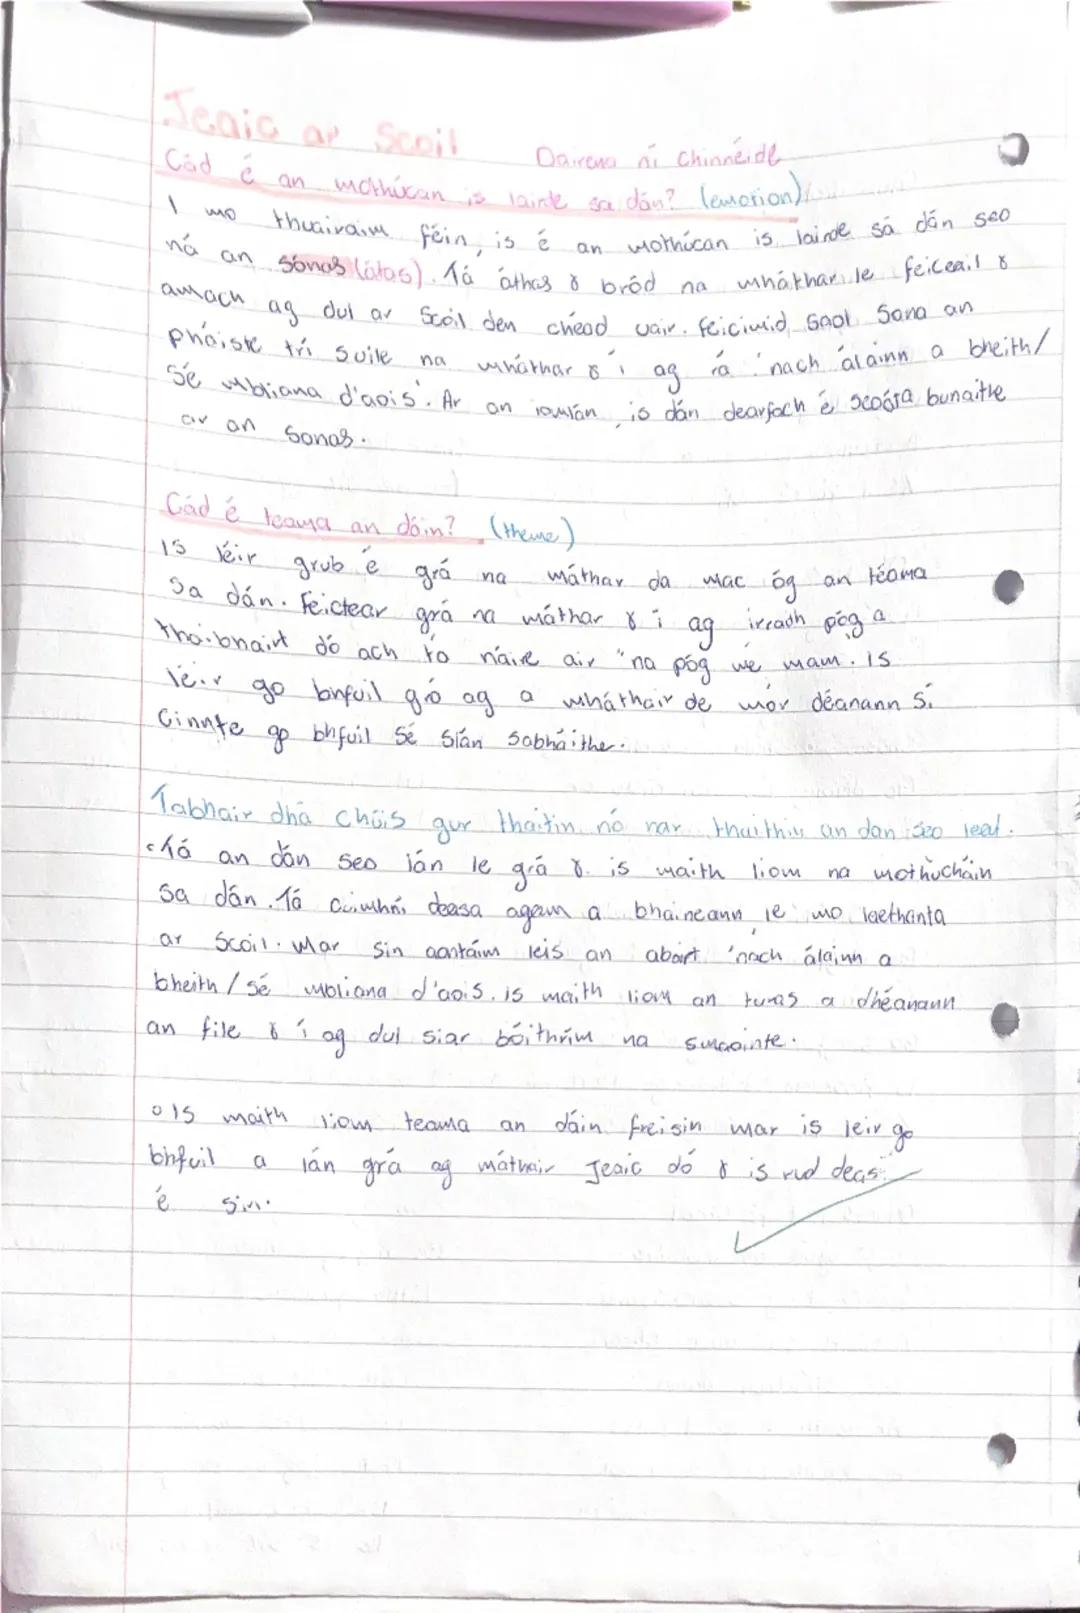 Jeaic ar Scoil
Dairena ní Chinnéide
Cád é an mothúcan is lainde sa dán? (emotion)
I mo thuairaim féin, is é an mothúcan is lainde sá dán seo
ná an sónas (átas). Tá áthas & bród na mháthar le feiceail &
amach ag dul ar Scoil den chéad uair. feicimid Saol Sona an
pháiste trí suile na mháthar & í ag rá 'nach álainn a bheith/
Sé mbliana d'aois'. Ar an iomlán, is dán dearfach é scoóra bunaithe
ar an Sonas.
Cád é teama an dáin? (theme)
Is léir grub é grá na máthar da mac óg an téama
Sa dán. Feictear grá na máthar & í ag irraidh póg a
thaibhairt dó ach tá náire air "na póg mé mam. Is
léir go bhfuil grá ag a mháthair de mór déanann Sí
Cinnte go bhfuil Sé Slán Sabháithe.
Tabhair dhá chúis gur thaitin nó nar thaithin an dan seo leat.
Tá an dán Seo lán le grá & is maith liom na mothúcháin
Sa dán. Tá cuimhní deasa agam a bhaineann le mo laethanta
ar Scoil. Mar Sin aontáim leis an abairt 'nach álainn a
bheith / Sé mbliana d'aois. Is maith liom an turas a dhéanann
an file & í ag dul siar bóithrím na smaointe.
o Is maith liom teama an dáin freisin mar is leir go
bhfuil a lán grá ag máthair Jeaic dó & is rud deas
é sin.